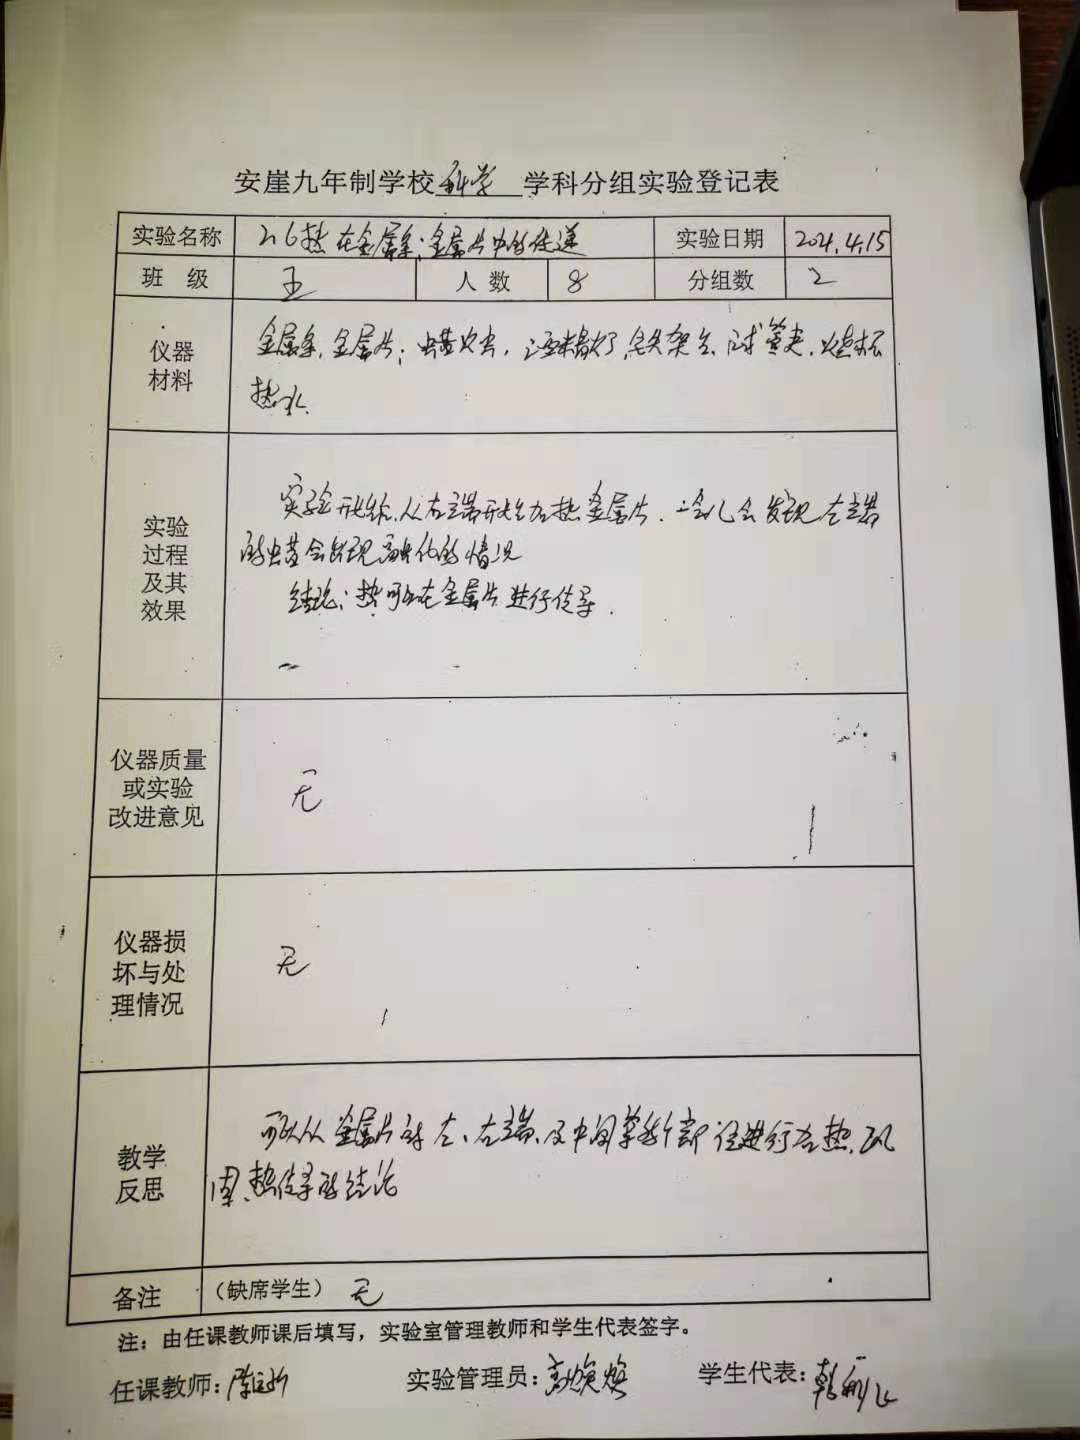 安崖九年制学校 科学 学科分组实验登记表
实验名称 热在金属条、金属片中的传递 实验日期 2021.4.15
班 级 五 人 数 8 分组数 2
仪器
材料
金属条,金属片,蜡烛,酒精灯,铁架台,试管夹,烧杯
热水
实验
过程
及其
效果
实验开始,从右端开始加热金属片.一会儿会发现左端
的蜡会出现融化的情况
结论:热可以在金属片进行传导.
仪器质量
或实验
改进意见
无
仪器损
坏与处
理情况
无
教学
反思
可以从金属片的左、右端、及中间等部位进行加热,巩
固热传导的结论
备注 (缺席学生) 无
注:由任课教师课后填写,实验室管理教师和学生代表签字。
任课教师: 实验管理员: 学生代表: